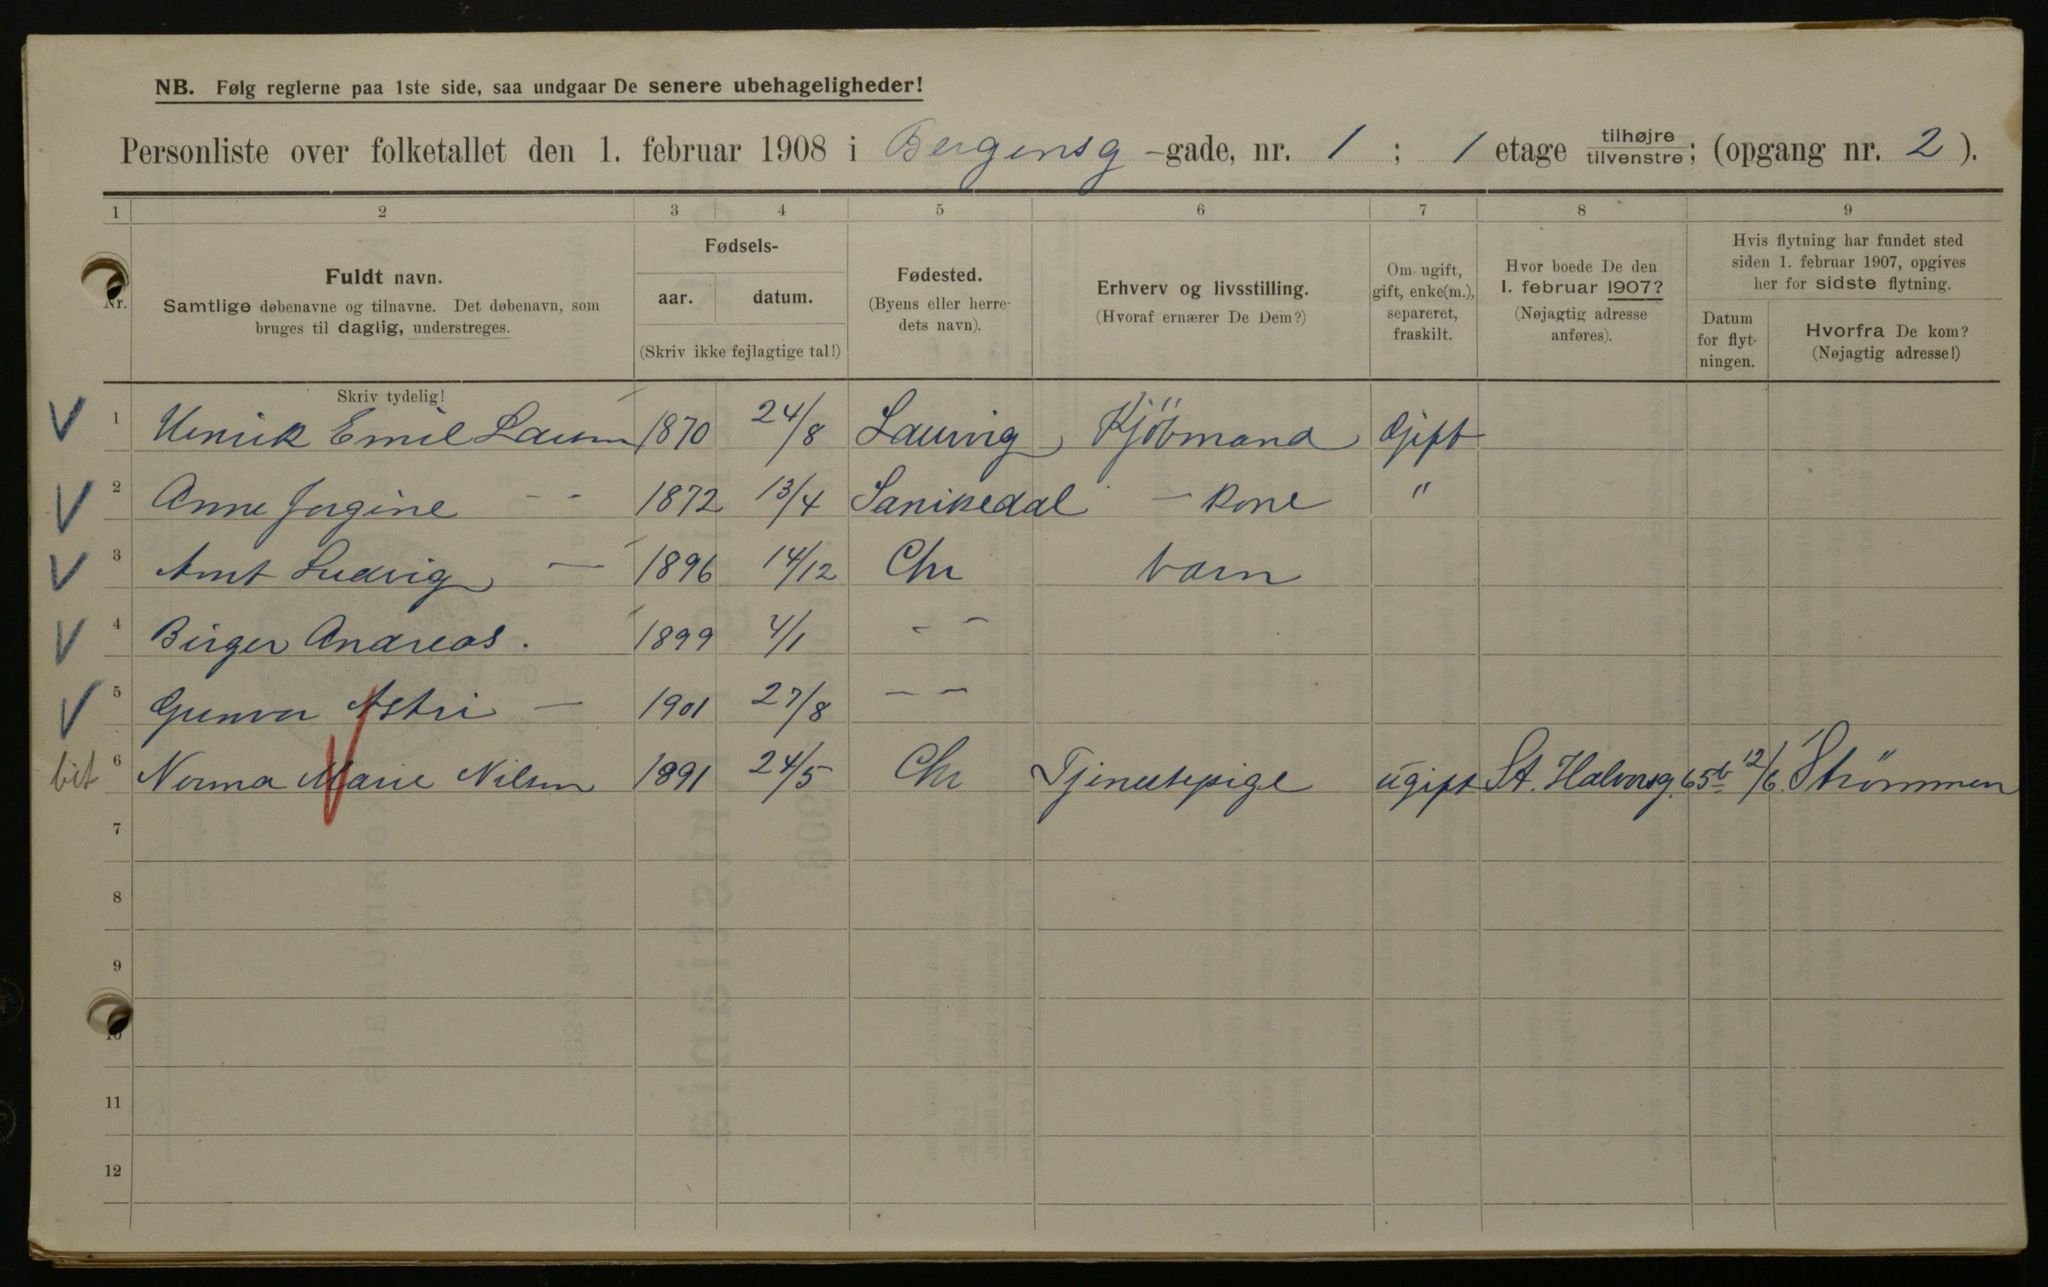 NB. Følg reglerne paa 1ste side, saa undgaar De senere ubehageligheder!
Personliste over folketallet den 1. februar 1908 i Bergensg -gade, nr. 1 ; 1 etage tilhøjre tilvenstre; (opgang nr. 2 ).
1 2 3 4 5 6 7 8 9
Nr.
Fuldt navn.
Samtlige døbenavne og tilnavne. Det døbenavn, som
bruges til daglig, understreges.
Skriv tydelig!
Fødsels-
aar. datum.
(Skriv ikke fejlagtige tal!)
Fødested.
(Byens eller herre-
dets navn).
Erhverv og livsstilling.
(Hvoraf ernærer De Dem?)
Om ugift,
gift, enke(m.),
separeret,
fraskilt.
Hvor boede De den
1. februar 1907?
(Nøjagtig adresse
anføres).
Hvis flytning har fundet sted
siden 1. februar 1907, opgives
her for sidste flytning.
Datum
for flyt-
ningen.
Hvorfra De kom?
(Nøjagtig adresse!)
1 Henrik Emil 1870 24/8 Laurvig Kjöbmand Gift
2 Anne Jorgine - - 1872 13/4 Sanikedal - kone "
3 Arnt Ludvig - 1896 14/12 Chr barn
4 Birger Andreas. 1899 4/1 - -
5 Gunvor Astri - 1901 27/8 - -
bit 6 Norma Marie Nilsen 1891 24/5 Chr Tjenestepige ugift St. Halvorsg. 65b 12/6 Strömmen
7
8
9
10
11
12